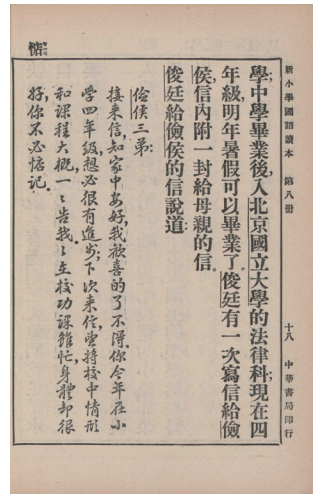 新小學國語讀本　第八冊
十八　中華書局印行
學；中學畢業後，入北京國立大學的法律科；現在四
年級，明年暑假可以畢業了。俊廷有一次寫信給儉
侯，信內附一封給母親的信。
俊廷給儉侯的信說道：
儉侯三弟：
接來信，知家中安好，我歡喜的了不得。你今年在小
學四年級，想必很有進步；下次來信，望將校中情形
和課程大概，一一告我。我在校功課雖忙，身體却很
好，你不必惦記。
惦